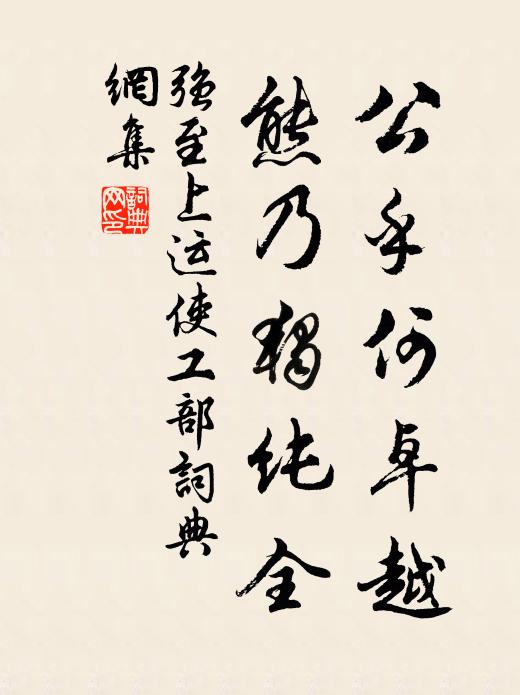 公乎何卓越
熊乃獨纯全
强至上运使工部詞典
網集
詞典網印